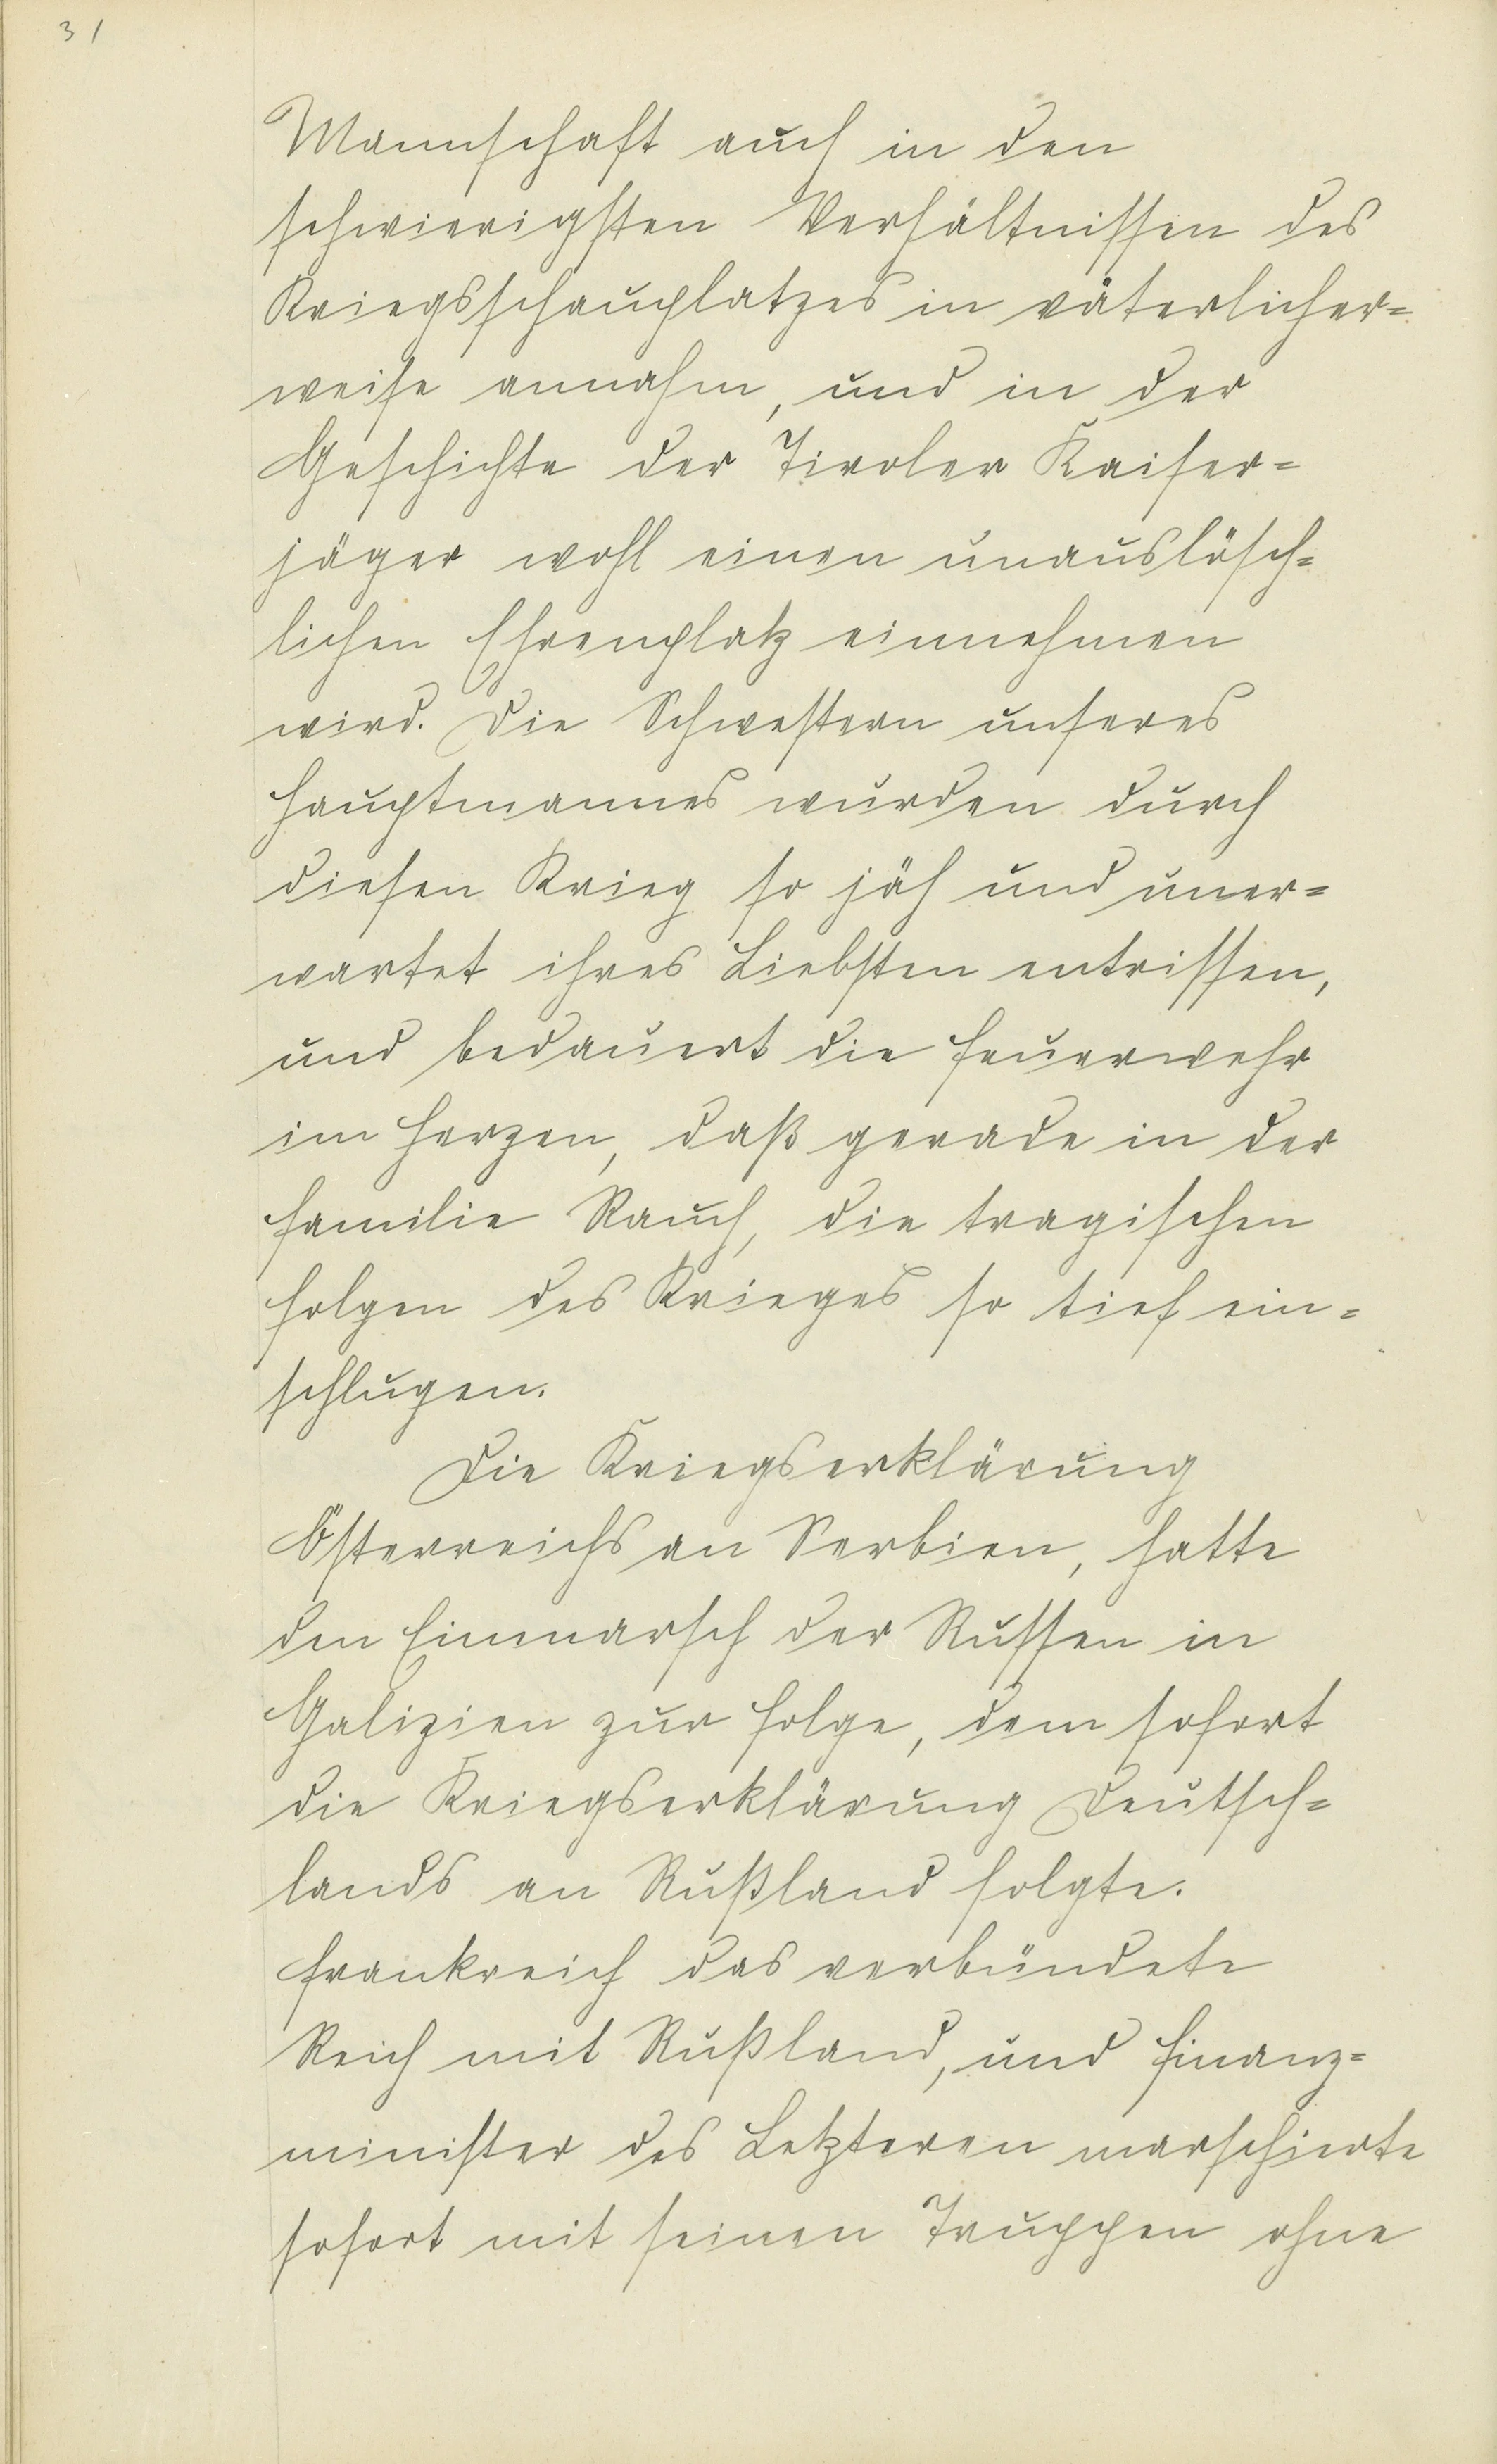 31
Mannschaft auch in den
schwierigsten Verhältnissen des
Kriegsschauplatzes in väterlicher=
weise annahm, und in der
Geschichte der Tiroler Kaiser=
jäger wohl einen unauslösch=
lichen Ehrenplatz einnehmen
wird. Die Schwestern unseres
Hauptmannes wurden durch
diesen Krieg so jäh und uner=
wartet ihres Liebsten entrissen,
und bedauert die Feuerwehr
im Herzen, daß gerade in der
Familie Rauch, die tragischen
Folgen des Krieges so tief ein=
schlugen.
Die Kriegserklärung
Österreichs an Serbien, hatte
den Einmarsch der Russen in
Galizien zur Folge, dem sofort
die Kriegserklärung Deutsch=
lands an Rußland folgte.
Frankreich das verbündete
Reich mit Rußland, und Finanz=
minister des Letzteren marschierte
sofort mit seinen Truppen ohne